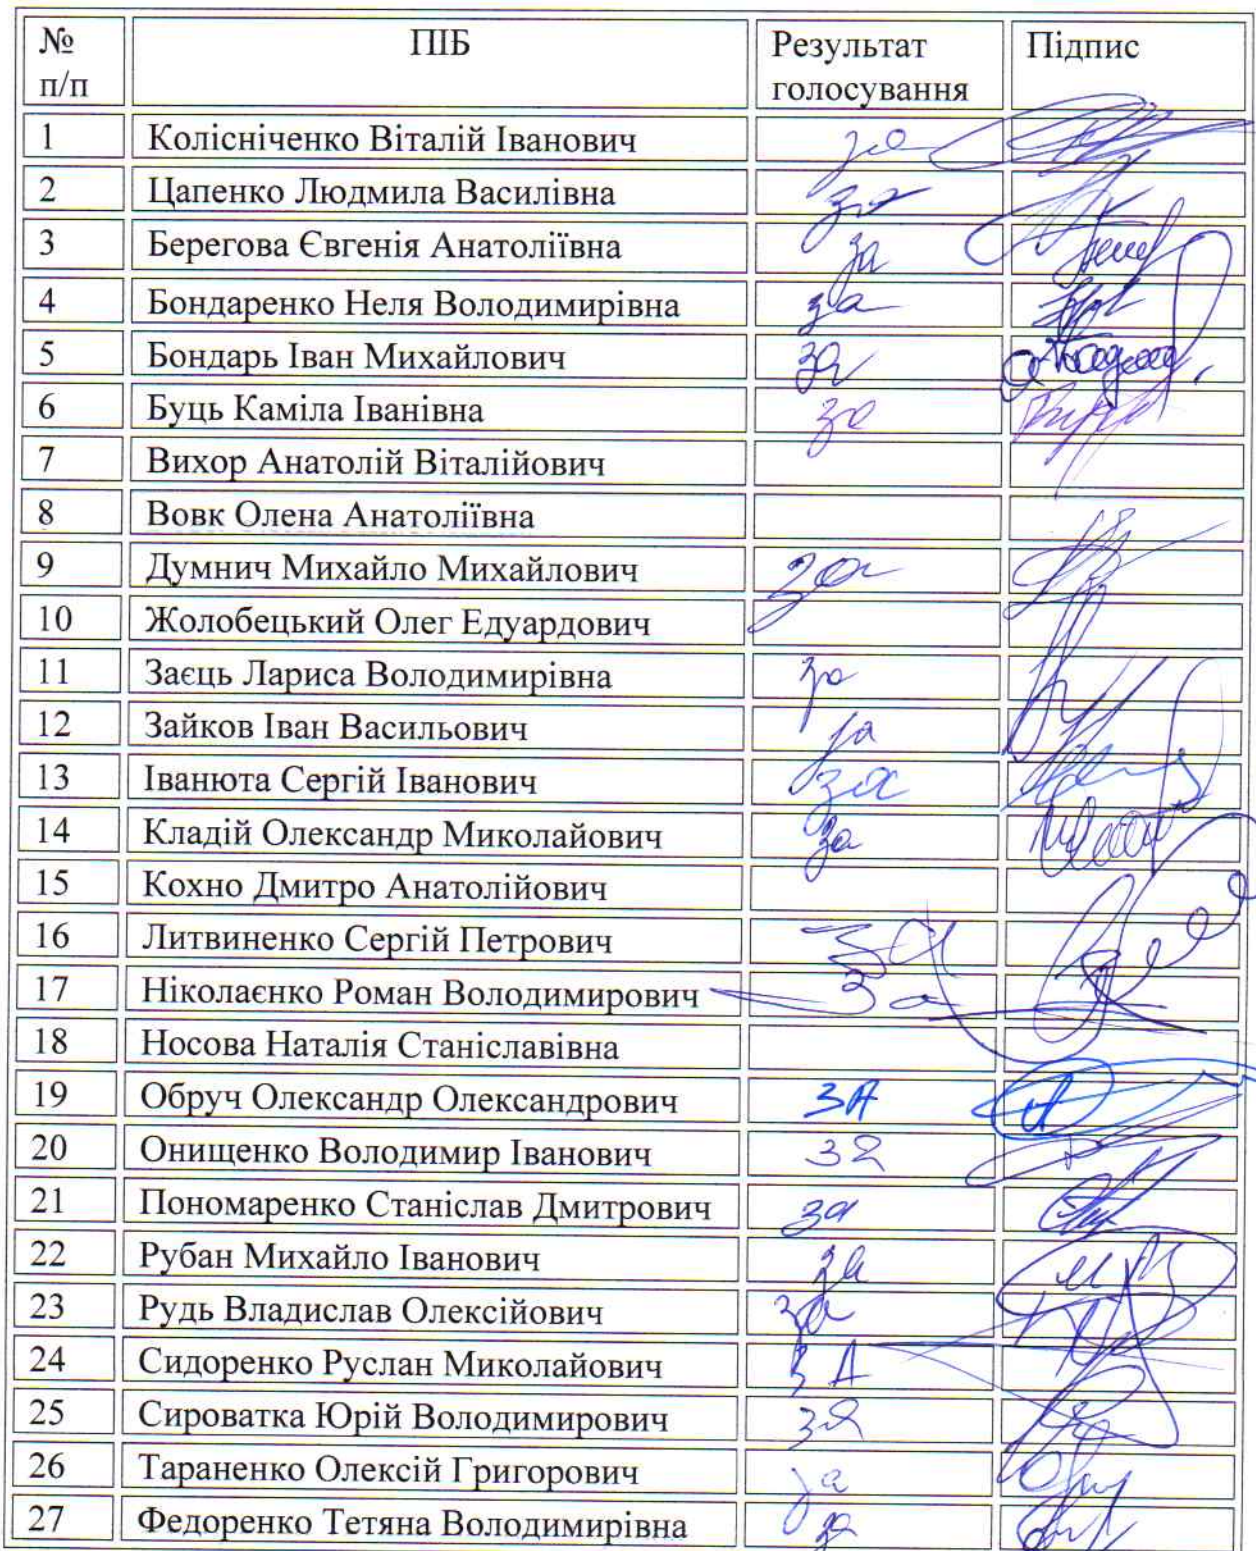 № п/п ПІБ Результат голосування Підпис
1 Колісніченко Віталій Іванович за
2 Цапенко Людмила Василівна за
3 Берегова Євгенія Анатоліївна за
4 Бондаренко Неля Володимирівна за
5 Бондарь Іван Михайлович за
6 Буць Каміла Іванівна за
7 Вихор Анатолій Віталійович
8 Вовк Олена Анатоліївна
9 Думнич Михайло Михайлович за
10 Жолобецький Олег Едуардович
11 Заєць Лариса Володимирівна за
12 Зайков Іван Васильович за
13 Іванюта Сергій Іванович за
14 Кладій Олександр Миколайович за
15 Кохно Дмитро Анатолійович
16 Литвиненко Сергій Петрович за
17 Ніколаєнко Роман Володимирович за
18 Носова Наталія Станіславівна
19 Обруч Олександр Олександрович ЗА
20 Онищенко Володимир Іванович за
21 Пономаренко Станіслав Дмитрович за
22 Рубан Михайло Іванович за
23 Рудь Владислав Олексійович за
24 Сидоренко Руслан Миколайович ЗА
25 Сироватка Юрій Володимирович за
26 Тараненко Олексій Григорович за
27 Федоренко Тетяна Володимирівна за